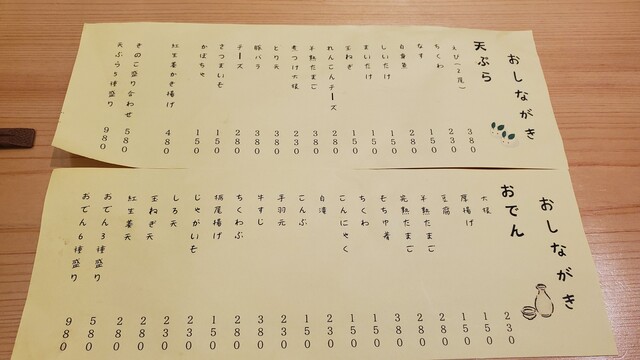 おしながき
天ぷら
えび(2尾) 380
ちくわ 150
なす 230
白身魚 280
しいたけ 180
まいたけ 150
玉ねぎ 150
れんこんチーズ 280
半熟たまご 380
煮つけ大根 230
とり天 380
豚バラ 380
チーズ 280
さつまいも 150
かぼちゃ 150
紅生姜かき揚げ 480
きのこ盛り合わせ 580
天ぷら5種盛り 980
おしながき
おでん
大根 230
厚揚げ 150
豆腐 150
半熟たまご 280
完熟たまご 280
もち巾着 380
ちくわ 150
こんにゃく 150
白滝 230
こんぶ 150
手羽元 230
牛すじ 380
ちくわぶ 280
栃尾揚げ 150
じゃがいも 230
しろ天 230
玉ねぎ天 280
紅生姜天 280
おでん3種盛り 580
おでん6種盛り 980